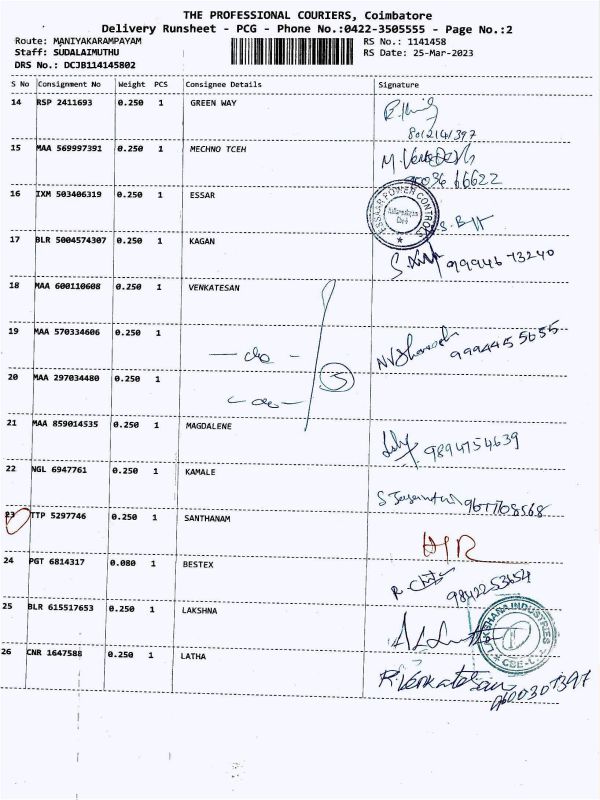 THE PROFESSIONAL COURIERS, Coimbatore
Delivery Runsheet - PCG - Phone No.:0422-3505555 - Page No.:2
Route: MANIYAKARAMPAYAM RS No.: 1141458
Staff: SUDALAIMUTHU RS Date: 25-Mar-2023
DRS No.: DCJB114145802
S No Consignment No Weight PCS Consignee Details Signature
14 RSP 2411693 0.250 1 GREEN WAY
15 MAA 569997391 0.250 1 MECHNO TCEH
16 IXM 503406319 0.250 1 ESSAR
ESSAAR POWER CONTROLS
17 BLR 5004574307 0.250 1 KAGAN
9994673240
18 MAA 600110608 0.250 1 VENKATESAN
19 MAA 570334606 0.250 1 — do — 9994455655
5
20 MAA 297034480 0.250 1 — do —
21 MAA 859014535 0.250 1 MAGDALENE 9894754639
22 NGL 6947761 0.250 1 KAMALE
23 TTP 5297746 0.250 1 SANTHANAM
24 PGT 6814317 0.080 1 BESTEX 9842253654
25 BLR 615517653 0.250 1 LAKSHNA
INDUSTRIES
CBE-
26 CNR 1647588 0.250 1 LATHA R. Venkatesan